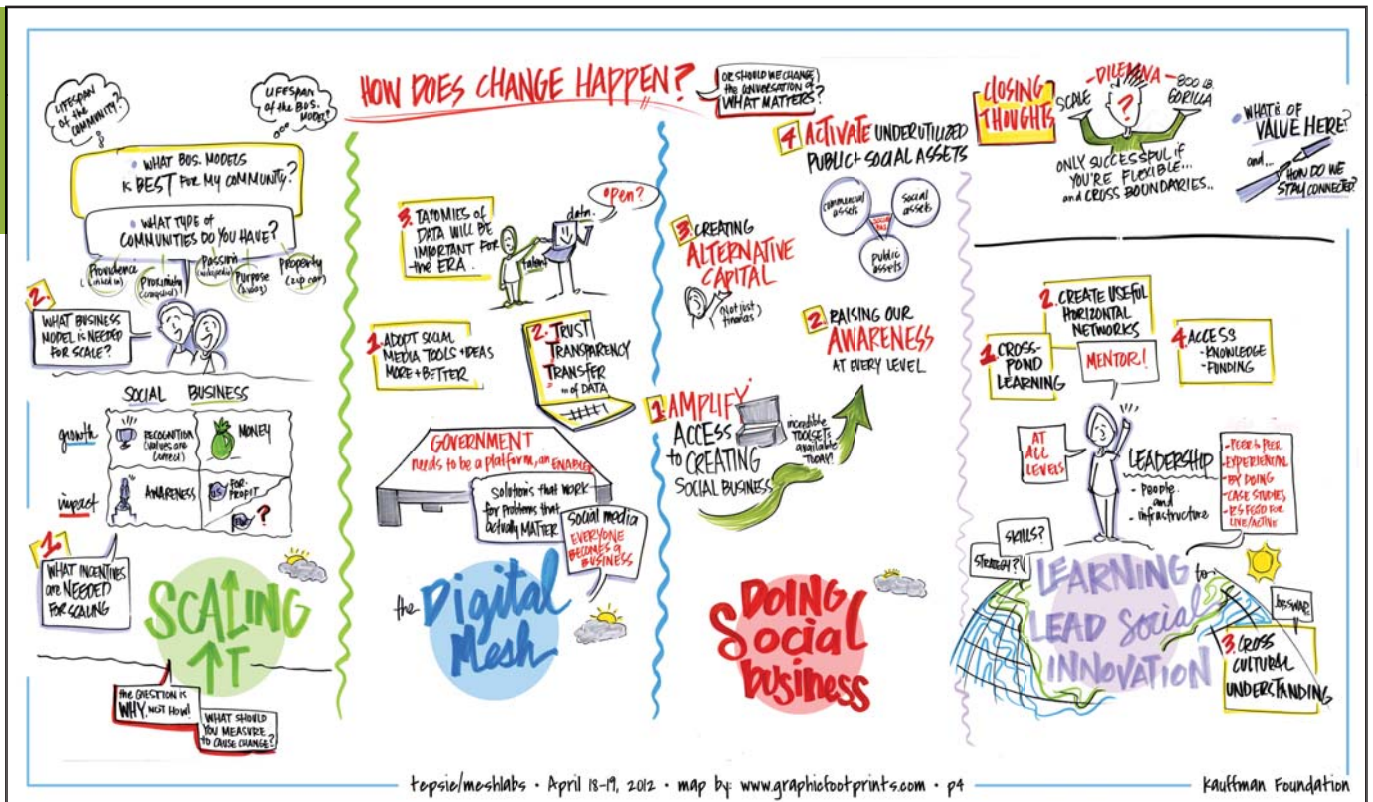 HOW DOES CHANGE HAPPEN?
OR SHOULD WE CHANGE
the CONVERSATION of
WHAT MATTERS?
LIFESPAN
of the
COMMUNITY?
LIFESPAN
of the BUS.
MODEL?
• WHAT BUS. MODELS
is BEST FOR MY COMMUNITY?
• WHAT TYPE of
COMMUNITIES DO YOU HAVE?
Providence
(linked in)
Proximity
(craigslist)
Passion
(wikipedia)
Purpose
Property
(zip car)
2.
WHAT BUSINESS
MODEL is NEEDED
FOR SCALE?
SOCIAL BUSINESS
growth
RECOGNITION
(values are
correct)
MONEY
impact
AWARENESS
FOR-
PROFIT
?
1.
WHAT INCENTIVES
are NEEDED
FOR SCALING
SCALING
IT
the QUESTION is
WHY, NOT HOW!
WHAT SHOULD
YOU MEASURE
to CAUSE CHANGE?
3. TAXOMIES of
DATA WILL BE
IMPORTANT FOR
the ERA.
data.
open?
talent
1. ADOPT SOCIAL
MEDIA TOOLS + IDEAS
MORE + BETTER
2. TRUST
TRANSPARENCY
TRANSFER
... of DATA
GOVERNMENT
needs to be a platform, an ENABLER
solutions that work
for problems that
actually MATTER
social media
EVERYONE
BECOMES a
BUSINESS
the Digital
Mesh
4 ACTIVATE UNDERUTILIZED
PUBLIC + SOCIAL ASSETS
commercial
assets
social
assets
public
assets
3. CREATING
ALTERNATIVE
CAPITAL
(Not just
finances)
2. RAISING OUR
AWARENESS
AT EVERY LEVEL
1. AMPLIFY
ACCESS
to CREATING
SOCIAL BUSINESS
incredible
TOOLSETS
available
TODAY!
DOING
Social
business
CLOSING
THOUGHTS
-DILEMMA-
SCALE
?
800 LB.
GORILLA
ONLY SUCCESSFUL if
YOU'RE FLEXIBLE...
and CROSS BOUNDARIES..
• WHAT is OF
VALUE HERE?
and...
HOW DO WE
STAY CONNECTED?
1. CROSS-
POND
LEARNING
2. CREATE USEFUL
HORIZONTAL
NETWORKS
MENTOR!
4. ACCESS
-KNOWLEDGE
-FUNDING
AT
ALL
LEVELS
LEADERSHIP
- people
and
- infrastructure
-PEER to PEER
-EXPERIENTIAL
-BY DOING
-CASE STUDIES
LIVE/ACTIVE
SKILLS?
STRATEGY?
LEARNING to
LEAD Social
INNOVATION
JOB SWAP
3. CROSS
CULTURAL
UNDERSTANDING
tepsie/meshlabs • April 18-19, 2012 • map by: www.graphicfootprints.com • p4
Kauffman Foundation